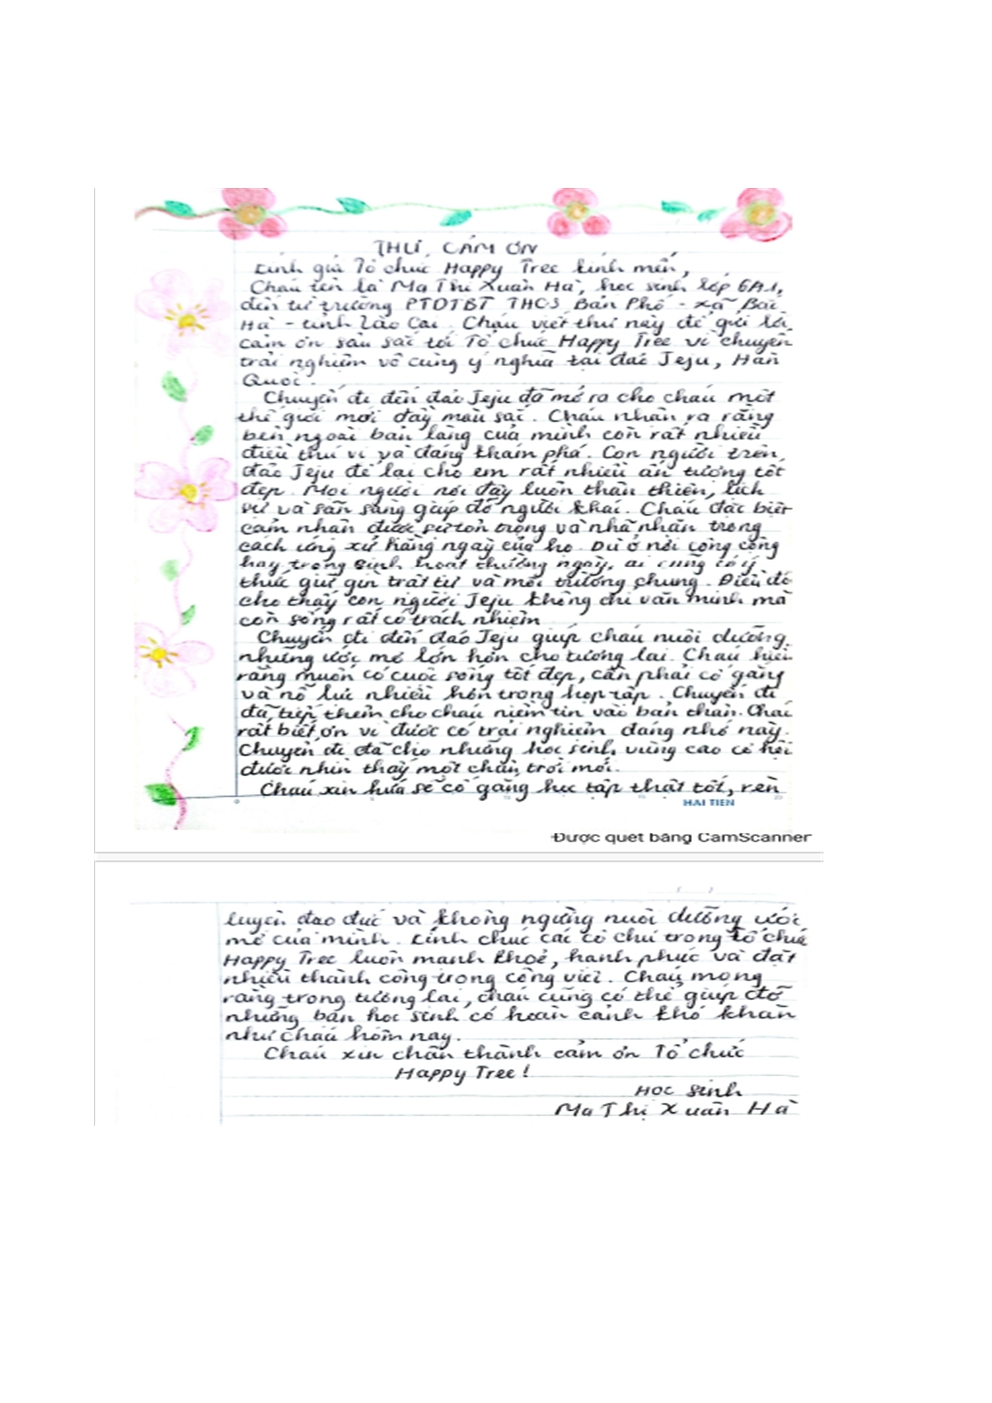 THƯ CẢM ƠN
Kính gửi Tổ chức Happy Tree kính mến,
Cháu tên là Ma Thị Xuân Hà, học sinh lớp 6A1,
đến từ trường PTDTBT THCS Bản Phố - xã Bắc
Hà - tỉnh Lào Cai. Cháu viết thư này để gửi lời
cảm ơn sâu sắc tới Tổ chức Happy Tree vì chuyến
trải nghiệm vô cùng ý nghĩa tại đảo Jeju, Hàn
Quốc.
Chuyến đi đến đảo Jeju đã mở ra cho cháu một
thế giới mới đầy màu sắc. Cháu nhận ra rằng
bên ngoài bản làng của mình còn rất nhiều
điều thú vị và đáng khám phá. Con người trên
đảo Jeju để lại cho em rất nhiều ấn tượng tốt
đẹp. Mọi người nơi đây luôn thân thiện, lịch
sự và sẵn sàng giúp đỡ người khác. Cháu đặc biệt
cảm nhận được sự tôn trọng và nhã nhặn trong
cách ứng xử hằng ngày của họ. Dù ở nơi công cộng
hay trong sinh hoạt thường ngày, ai cũng có ý
thức giữ gìn trật tự và môi trường chung. Điều đó
cho thấy con người Jeju không chỉ văn minh mà
còn sống rất có trách nhiệm
Chuyến đi đến đảo Jeju giúp cháu nuôi dưỡng
những ước mơ lớn hơn cho tương lai. Cháu hiểu
rằng muốn có cuộc sống tốt đẹp, cần phải cố gắng
và nỗ lực nhiều hơn trong học tập. Chuyến đi
đã tiếp thêm cho cháu niềm tin vào bản thân. Cháu
rất biết ơn vì được có trải nghiệm đáng nhớ này.
Chuyến đi đã cho những học sinh vùng cao cơ hội
được nhìn thấy một chân trời mới.
Cháu xin hứa sẽ cố gắng học tập thật tốt, rèn
HẢI TIẾN
Được quét bằng CamScanner
luyện đạo đức và không ngừng nuôi dưỡng ước
mơ của mình. Kính chúc các cô chú trong tổ chức
Happy Tree luôn mạnh khoẻ, hạnh phúc và đạt
nhiều thành công trong công việc. Cháu mong
rằng trong tương lai, cháu cũng có thể giúp đỡ
những bạn học sinh có hoàn cảnh khó khăn
như cháu hôm nay.
Cháu xin chân thành cảm ơn Tổ chức
Happy Tree!
Học sinh
Ma Thị Xuân Hà